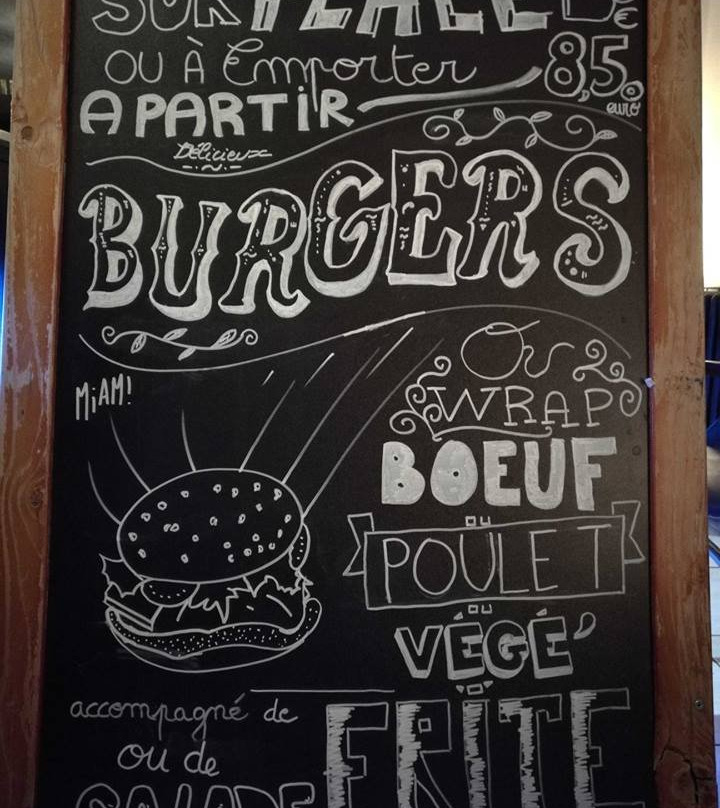 SUR PLACE
OU À Emporter
A PARTIR 8,5. €
euro
Délicieux
BURGERS
MiAM!
Ou
WRAP
BOEUF
ou
POULET
ou
VÉGÉ'
accompagné de FRITE
ou de
SALADE